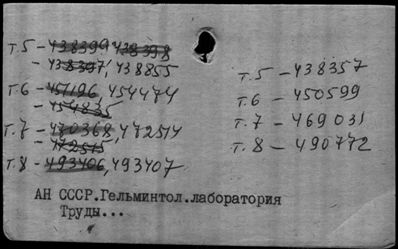 т.5 - 438399 438398
- 438397, 438855
т.6 - 451196, 454474
- 454835
т.7 - 470368, 472514
- 472515
т.8 - 493406, 493407
т.5 - 438357
т.6 - 450599
т.7 - 469031
т.8 - 490772
АН СССР.Гельминтол.лаборатория
Труды...